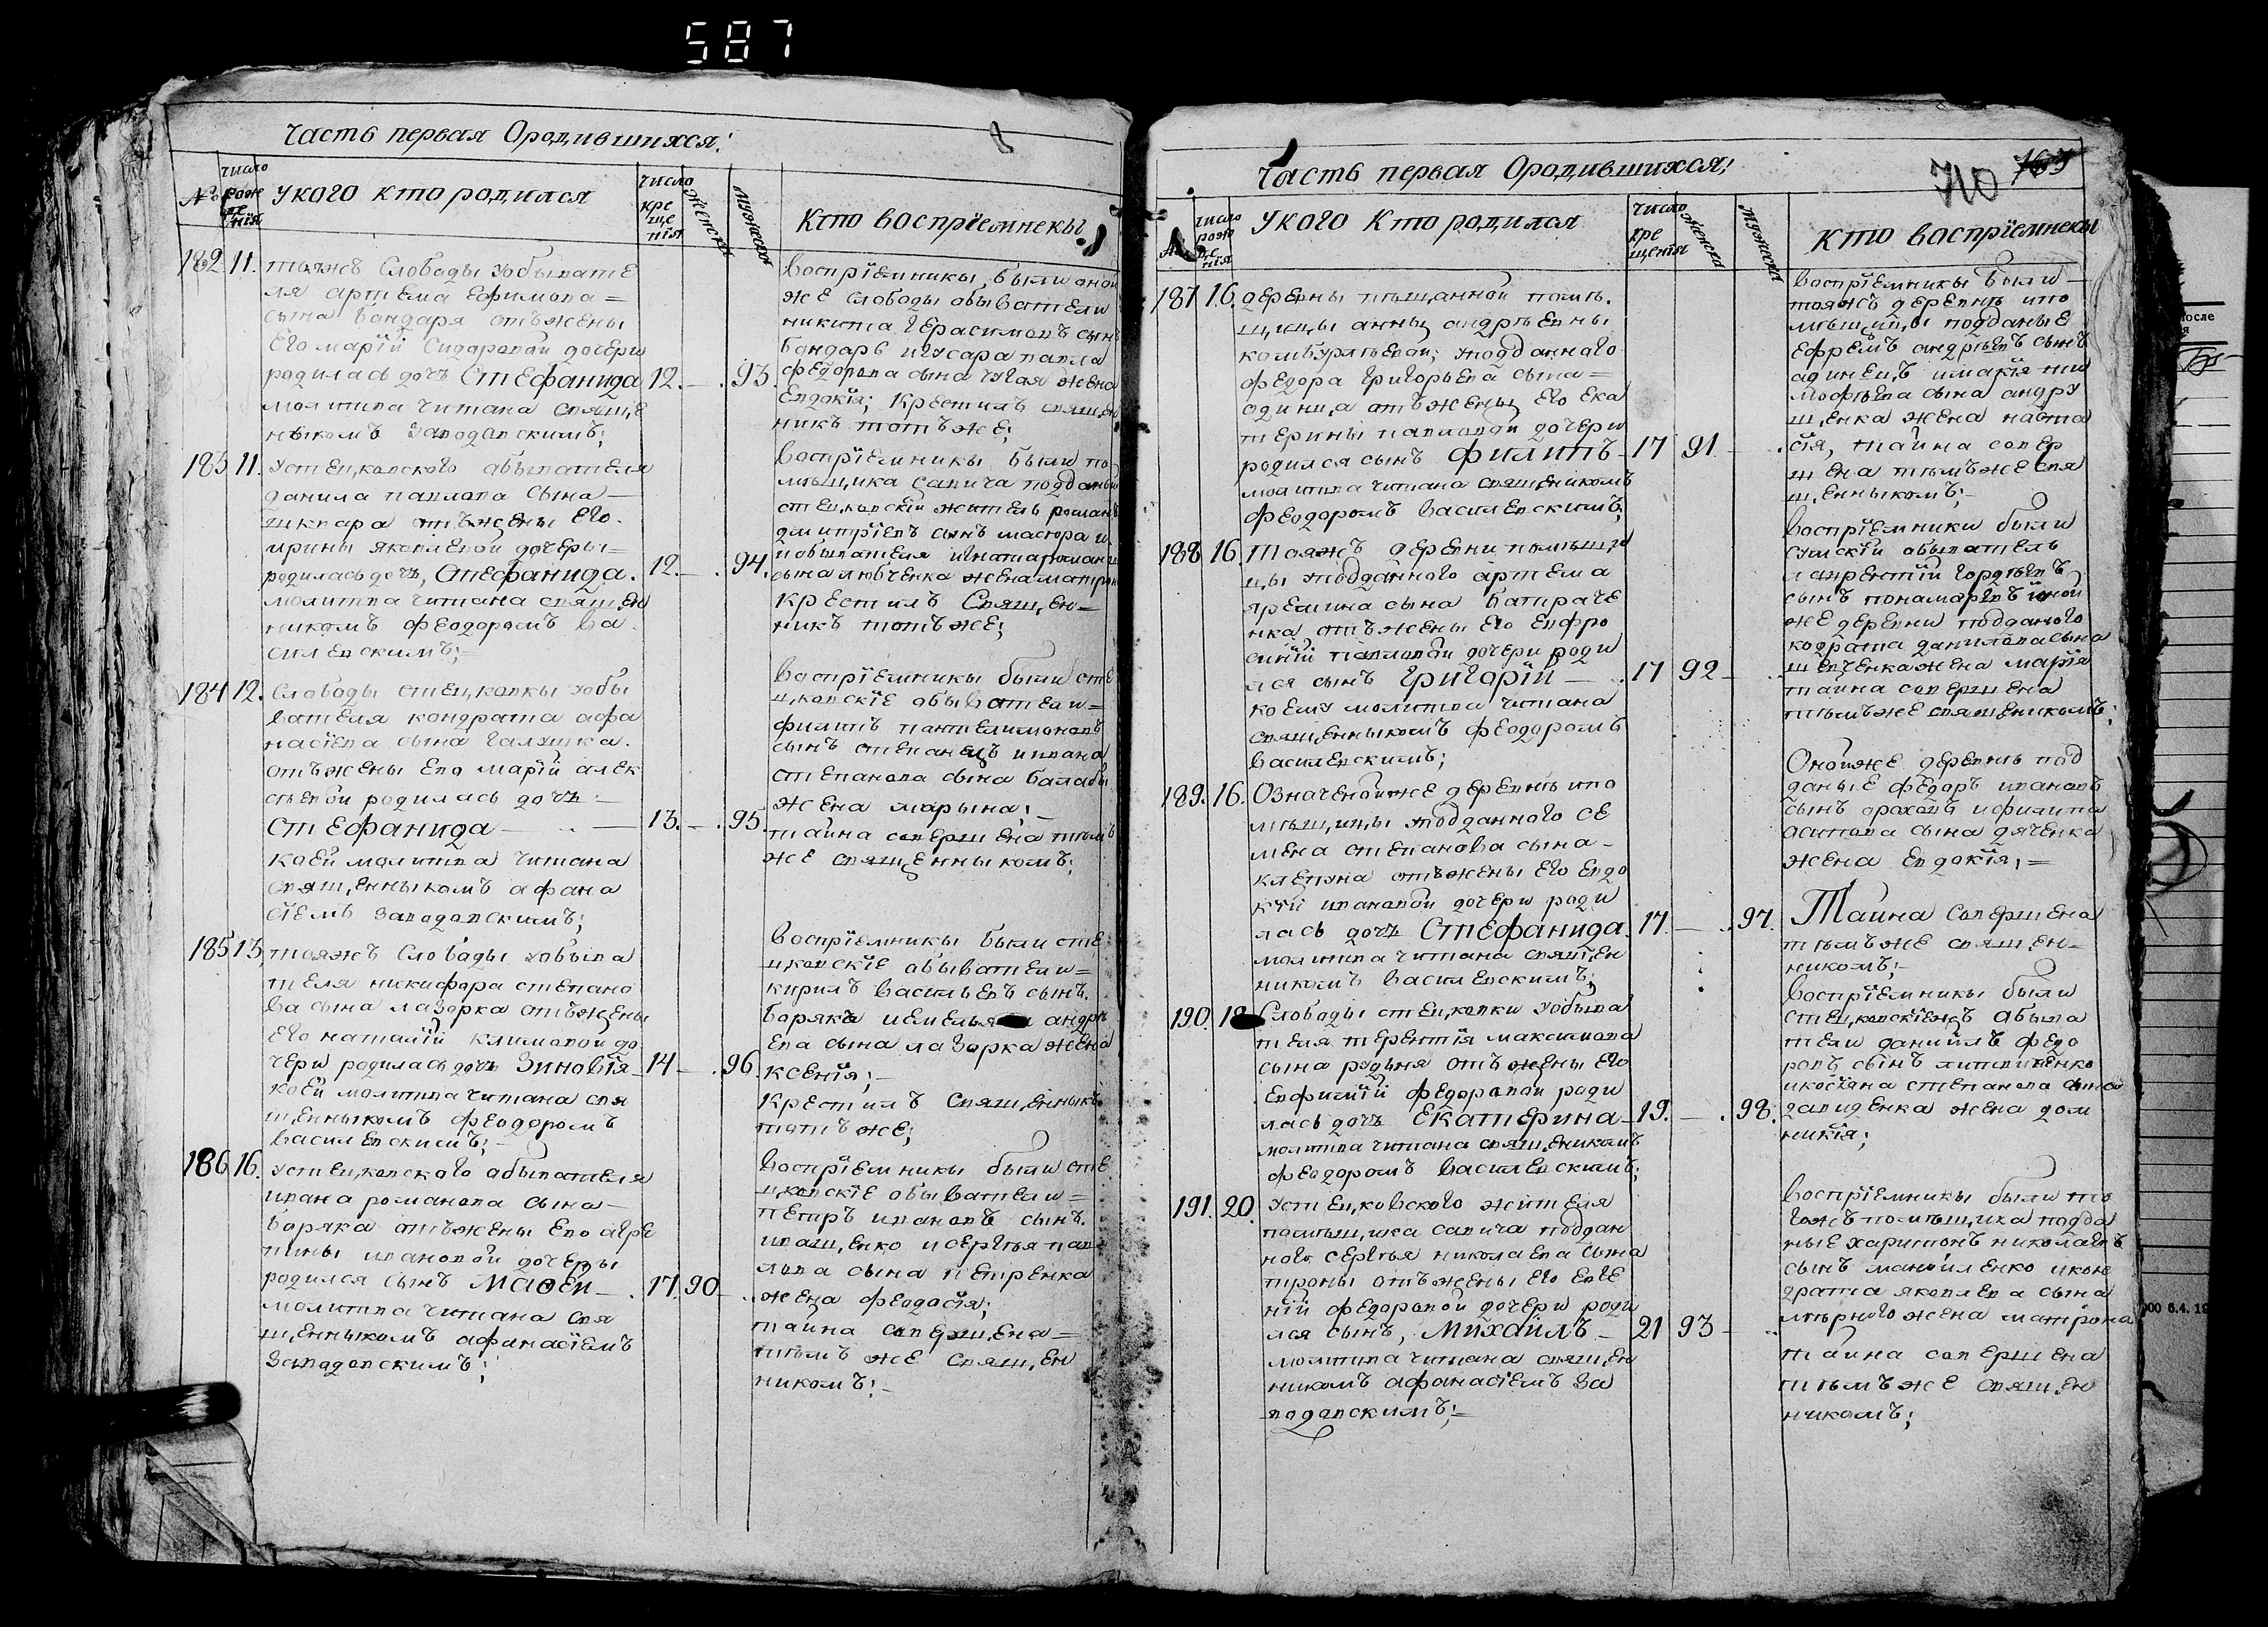 587
Часть первая Ородившихся:
№
число роженія
Укого кто родился
число крещенія
женска
мужеска
Кто восприемнекы
182 11. тояжъ Слободы уобывате
ля артема Ефимова =
сына бондаря отъжены
Его маріи Сидоровой дочери
родилась дочь Стефанида 12. — 93.
молитва читана свяще
ныкомъ Заводовскимъ;
Восприемники были оной
же слободы обыватели
никита Герасимовъ сынъ
бондарь
федорова сына жена
Евдокія; крестилъ священ
никъ тотъже;
183 11. устецковского обывателя
данила павлова сына —
шкпара отъжены Его
ирины яковлевой дочеры =
родилась дочь, Стефанида. 12. — 94.
молитва читана священ
никомъ феодоромъ Ва
силевскимъ; —
Восприемники были по
мещика Савича подданый
стецковскій житель романъ
дмитріевъ сынъ
сына любченка жена матрона
крестилъ Священ =
никъ тотъже;
184 12. Слободы стецковкы уобы
вателя кондрата афа
насіева сына Галушка.
отъжены Его маріи алек
сѣевой родилась дочь —
Стефанида — 13. — 95.
коей молитва читана
священныкомъ афана
сіемъ Заводовскимъ;
Восприемникы были сте
цковскіе обыватели =
филипъ пантелимоновъ
сынъ степанецъ иивана
степанова сына балабы
жена марына;
тайна совершена тѣмъ
же священныкомъ;
185 13. тояжъ Слободы уобыва
теля никифора степано
ва сына лазорка отъжены
Его наталіи климовой до
чери родилась дочь Зиновія 14 — 96.
коей молитва читана свя
щенныкомъ феодоромъ
василевскимъ; —
Восприемникы были сте
цковскіе обыватели =
кирилъ васильевъ сынъ.
борякъ иемельяна андре
ева сына лазорка жена
ксенія; —
крестилъ священныкъ
тотъже;
186 16. устецковского обывателя
ивана романова сына —
боряка отъжены Его агре
пины ивановой дочеры
родился сынъ Мавей — 17. 90 —
молитва читана свя
щенныкомъ афанасіемъ
Заводовскимъ;
Восприемникы были сте
цковскіе обыватели =
петръ ивановъ сынъ.
иващенко исергѣя пав
лова сына петренка
жена феодосія;
тайна совершена =
тѣмъ же священ
никомъ; —
Часть первая Ородившихся;
710
число роженія
укого кто родился
число крещенія
женска
мужеска
кто восприемнекы
187 16. деревны пещанной помѣ.
щицы анны андрѣевны
комбурлѣевой; подданного
федора Григорьева сына =
одинца отъжены Его Ека
терины павловой дочери
родился сынъ Филипъ 17 91 —
молитва читана священикомъ
феодоромъ василевскимъ;
восприемникы были —
тояжъ деревнѣ ипо
мѣщицы подданые
Ефремъ андрѣевъ сынъ
одинецъ имарія ти
мофѣева сына андру
щенка жена наста
сія, тайна совер
шена тѣмъже свя
щенныкомъ; —
188 16. тояжъ деревни помѣщи
цы подданного артема
яремина сына батраче
нка отъжены Его Евфро
синіи павловой дочери роди
лся сынъ Григорій — 17 92 —
коему молитва читана
священныкомъ феодоромъ
василевскимъ;
Восприемники были
сумскій обыватель
лаврентій Гордѣевъ
сынъ понамаревъ ионой
же деревни подданого
кодрата данилова сына
шевченка жена марія
тайна совершена
тѣмъже священикомъ;
189. 16. Означеной же деревнѣ ипо
мѣщицы подданного се
мена степанова сына —
клепуна отъжены Его Евдо
кіи ивановой дочери роди
лась дочь Стефанида. 17. — 97.
молитва читана священ
никомъ василевскимъ;
Онойже деревнѣ под
даные федоръ ивановъ
сынъ ороховъ ифилипа
осипова сына дяченка
жена Евдокія; =
Тайна совершена
тѣмъже священ
никомъ; —
190. 18 Слободы стецковки уобыва
теля терентія максимова
сына родыня отъжены Его
Евфиміи федоровой роди
лась дочь Екатерина 19. — 98.
молитва читана священикомъ
феодоромъ василевскимъ;
восприемникы были
стецковскіежъ обыва
тели данилъ федо
ровъ сынъ литвиненко
икосіяна степанова сына
давиденка жена дом
никія;
191. 20. Устецковского жителя
помѣщика савича поддан
ного сергѣя николаева сына
троны отъжены Его Евге
ніи федоровой дочери роди
лся сынъ, Михаилъ — 21 93 —
молитва читана священ
никомъ афанасіемъ За
водовскимъ; =
Восприемникы были то
гожъ помѣщика подда
ные харитонъ николаевъ
сынъ манойленко икон
драта яковлева сына
мѣрного жена матрона
тайна совершена
тѣмъже священ
никомъ;